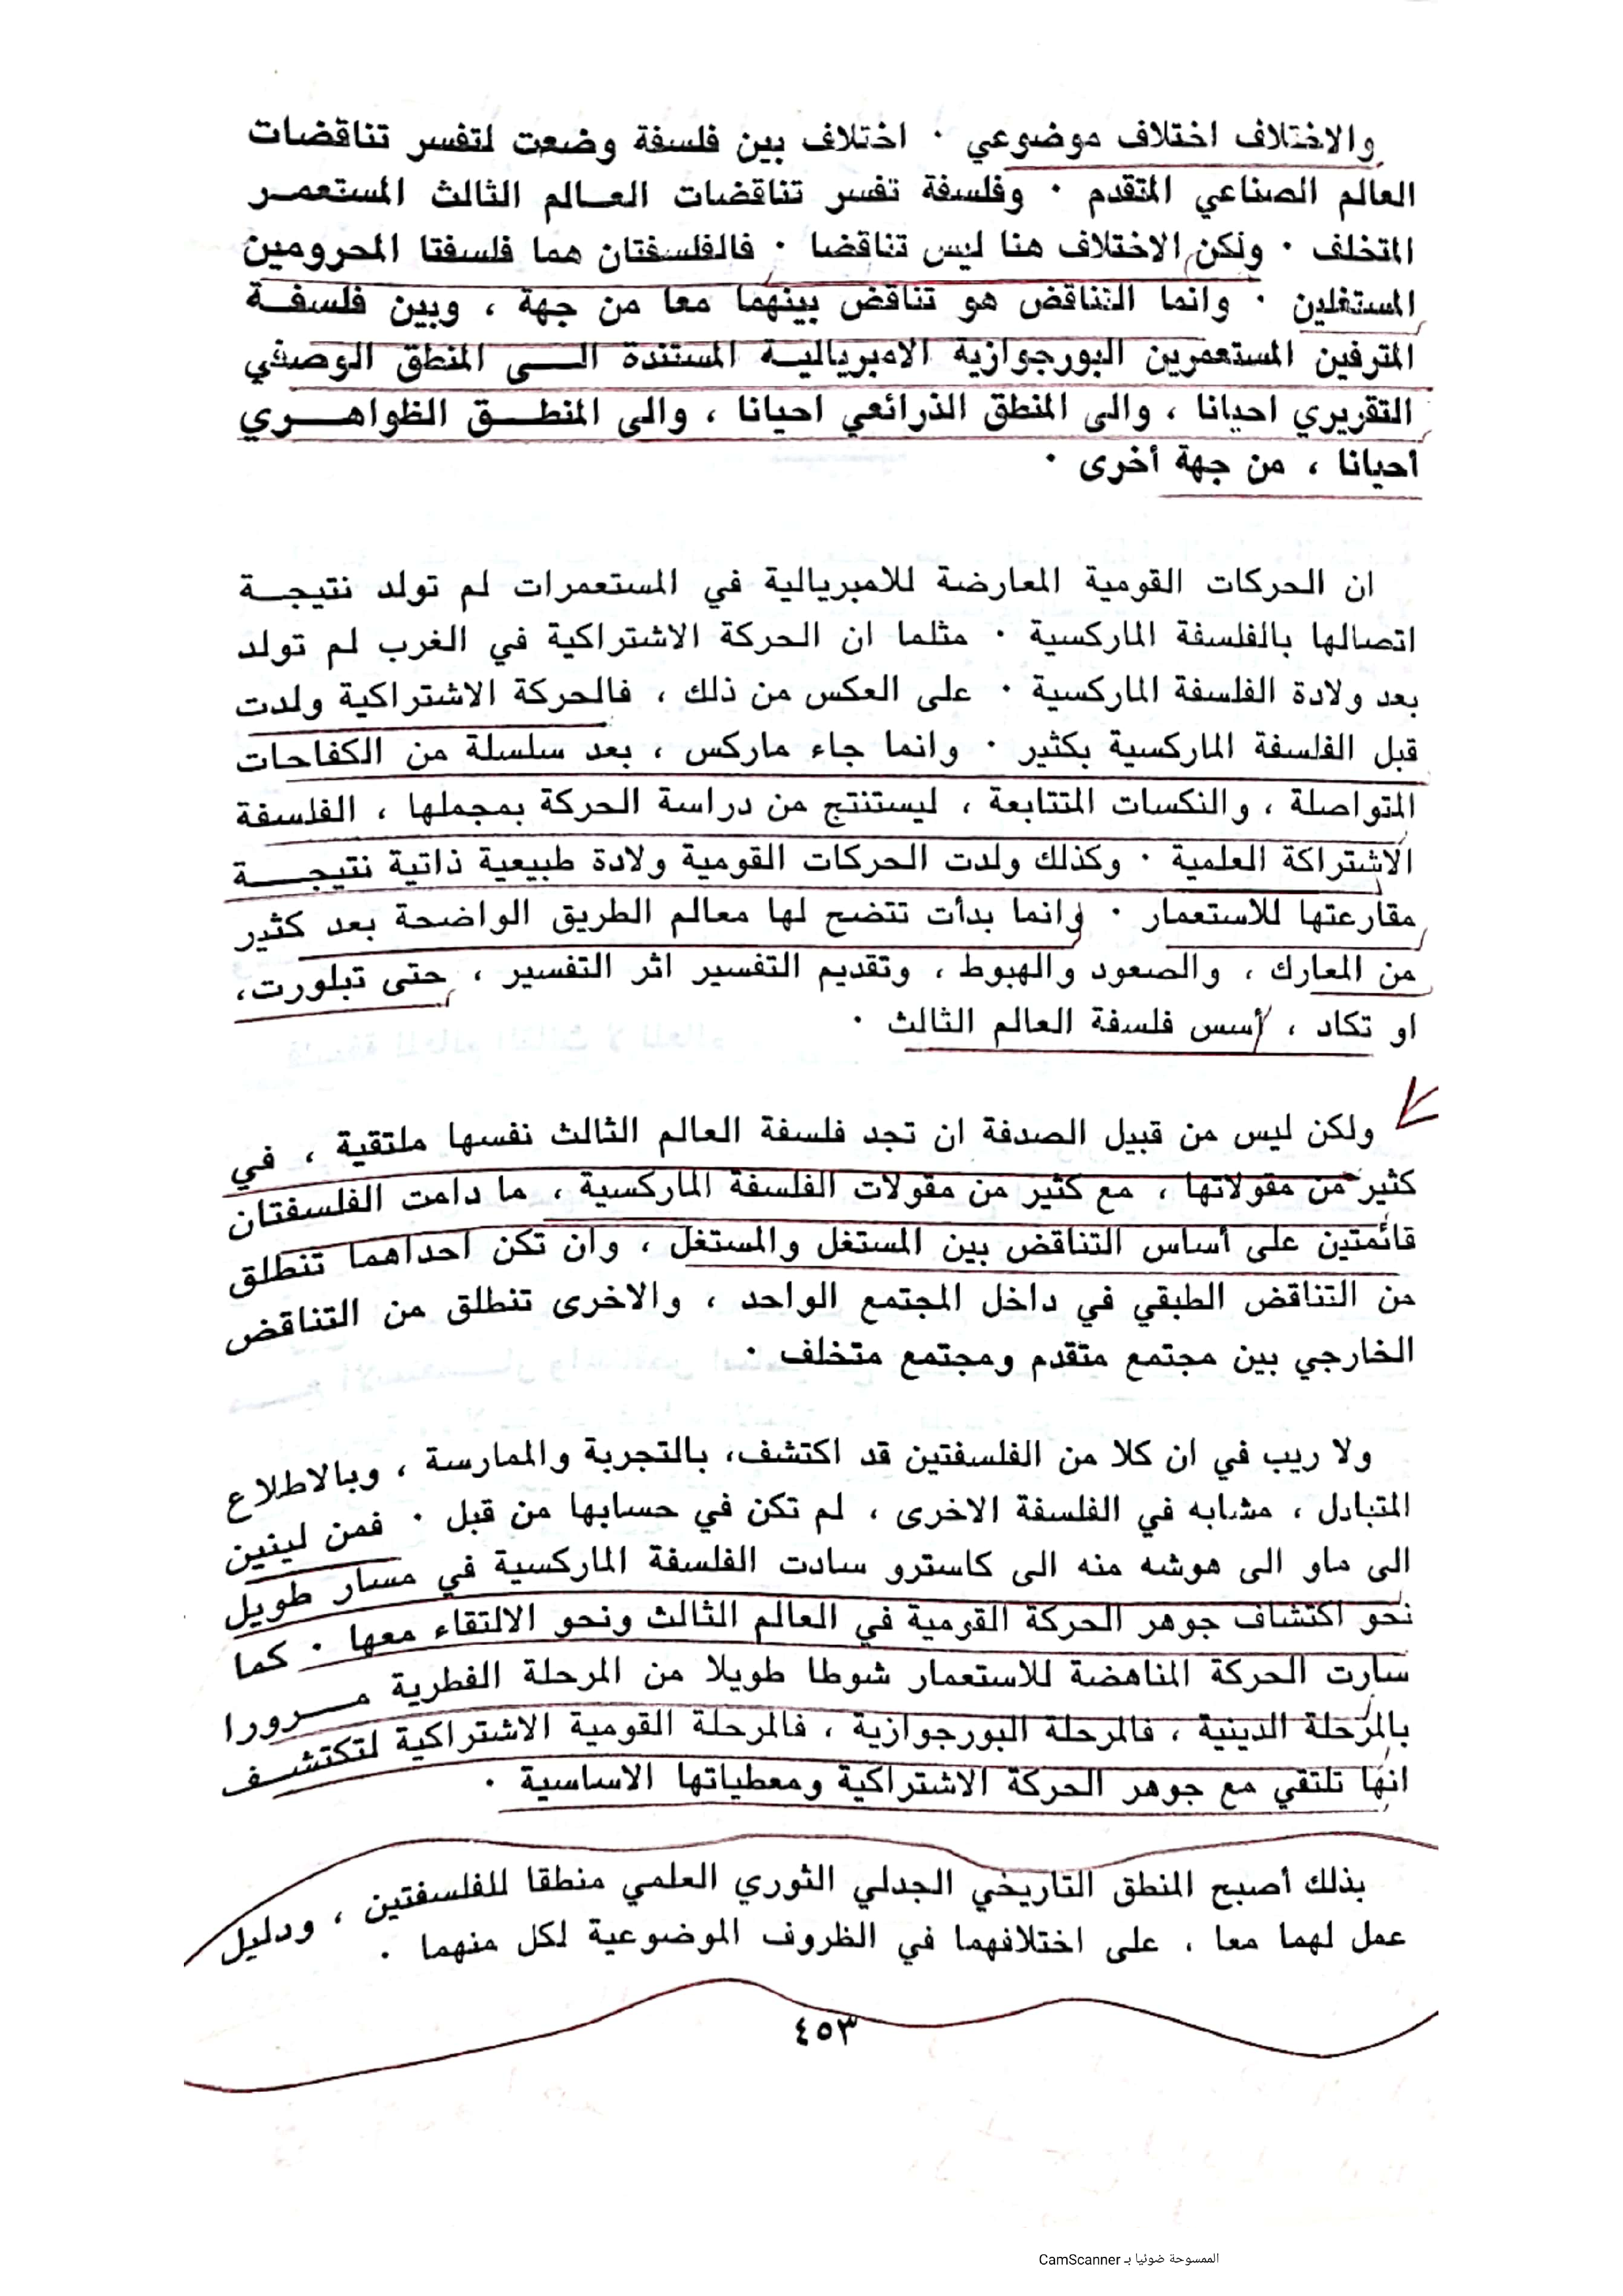 والاختلاف اختلاف موضوعي ٠ اختلاف بين فلسفة وضعت لتفسر تناقضات
العالم الصناعي المتقدم ٠ وفلسفة تفسر تناقضات العالم الثالث المستعمر
المتخلف ٠ ولكن الاختلاف هنا ليس تناقضا ٠ فالفلسفتان هما فلسفتا المحرومين
المستغلين ٠ وانما التناقض هو تناقض بينهما معا من جهة ، وبين فلسفة
المترفين المستعمرين البورجوازية الامبريالية المستندة الى المنطق الوصفي
التقريري احيانا ، والى المنطق الذرائعي احيانا ، والى المنطق الظواهري
أحيانا ، من جهة أخرى ٠
ان الحركات القومية المعارضة للامبريالية في المستعمرات لم تولد نتيجة
اتصالها بالفلسفة الماركسية ٠ مثلما ان الحركة الاشتراكية في الغرب لم تولد
بعد ولادة الفلسفة الماركسية ٠ على العكس من ذلك ، فالحركة الاشتراكية ولدت
قبل الفلسفة الماركسية بكثير ٠ وانما جاء ماركس ، بعد سلسلة من الكفاحات
المتواصلة ، والنكسات المتتابعة ، ليستنتج من دراسة الحركة بمجملها ، الفلسفة
الاشتراكة العلمية ٠ وكذلك ولدت الحركات القومية ولادة طبيعية ذاتية نتيجة
مقارعتها للاستعمار ٠ وانما بدأت تتضح لها معالم الطريق الواضحة بعد كثير
من المعارك ، والصعود والهبوط ، وتقديم التفسير اثر التفسير ، حتى تبلورت،
او تكاد ، أسس فلسفة العالم الثالث ٠
ولكن ليس من قبيل الصدفة ان تجد فلسفة العالم الثالث نفسها ملتقية ، في
كثير من مقولاتها ، مع كثير من مقولات الفلسفة الماركسية ، ما دامت الفلسفتان
قائمتين على أساس التناقض بين المستغل والمستغل ، وان تكن احداهما تنطلق
من التناقض الطبقي في داخل المجتمع الواحد ، والاخرى تنطلق من التناقض
الخارجي بين مجتمع متقدم ومجتمع متخلف ٠
ولا ريب في ان كلا من الفلسفتين قد اكتشف، بالتجربة والممارسة ، وبالاطلاع
المتبادل ، مشابه في الفلسفة الاخرى ، لم تكن في حسابها من قبل ٠ فمن لينين
الى ماو الى هوشه منه الى كاسترو سادت الفلسفة الماركسية في مسار طويل
نحو اكتشاف جوهر الحركة القومية في العالم الثالث ونحو الالتقاء معها ٠ كما
سارت الحركة المناهضة للاستعمار شوطا طويلا من المرحلة الفطرية مرورا
بالمرحلة الدينية ، فالمرحلة البورجوازية ، فالمرحلة القومية الاشتراكية لتكتشف
انها تلتقي مع جوهر الحركة الاشتراكية ومعطياتها الاساسية ٠
بذلك أصبح المنطق التاريخي الجدلي الثوري العلمي منطقا للفلسفتين ، ودليل
عمل لهما معا ، على اختلافهما في الظروف الموضوعية لكل منهما ٠
٤٥٣
الممسوحة ضوئيا بـ CamScanner